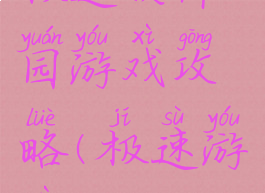 yuán yóu xì gōng
园游戏攻
lüè jí sù yóu
略(极速游